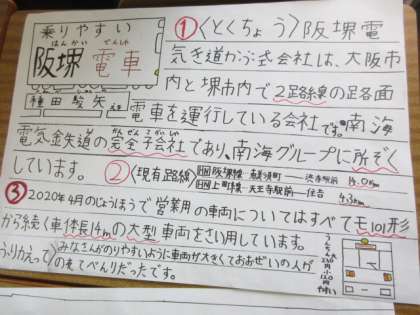 乗りやすい
はんかい でんしゃ
阪堺電車
種田駿矢
①〈とくちょう〉阪堺電
気き道かぶ式会社は、大阪市
内と堺市内で2路線の足各面
電車を運行している会社です。南海
電気金失道の完全子会社であり、南海グループに所ぞく
しています。②〈現有路線〉
阪堺線 恵美須町 ― 浜寺駅前 14.0km
上町線 天王寺駅前 ― 住吉 4.3km
③2020年4月のじょうほうで営業用の車両についてはすべてモ101形
から続く車体長14mの大型車両をさい用しています。
ふりかえって〉みなさんがのりやすいように車両が大きくておおぜいの人が
のれてべんりだったです。